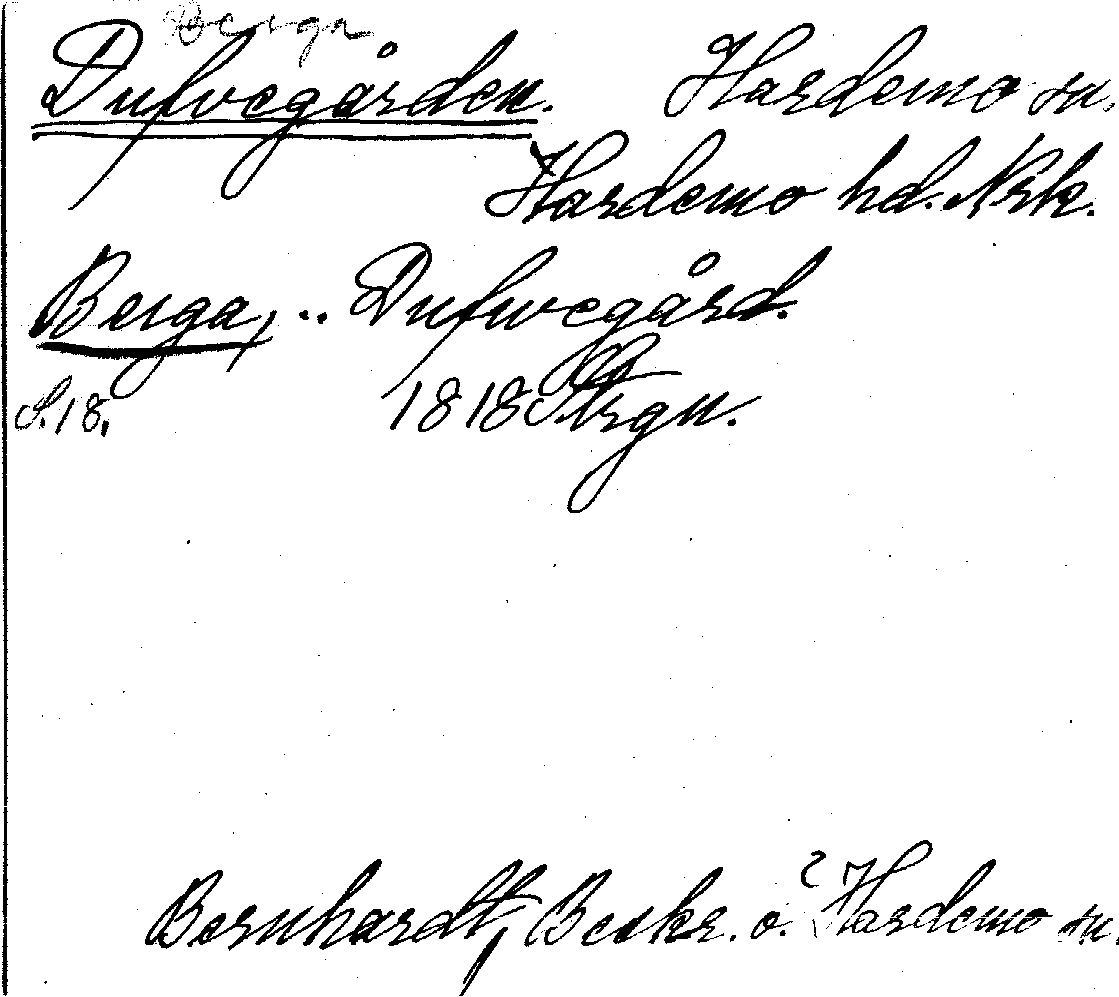 Berga
Dufvegården. Hardemo sn.
Hardemo hd. Nrk.
Berga, .. Dufwegård.
S. 18. 1818
Bernhardt, Beskr. ö. Hardemo sn.